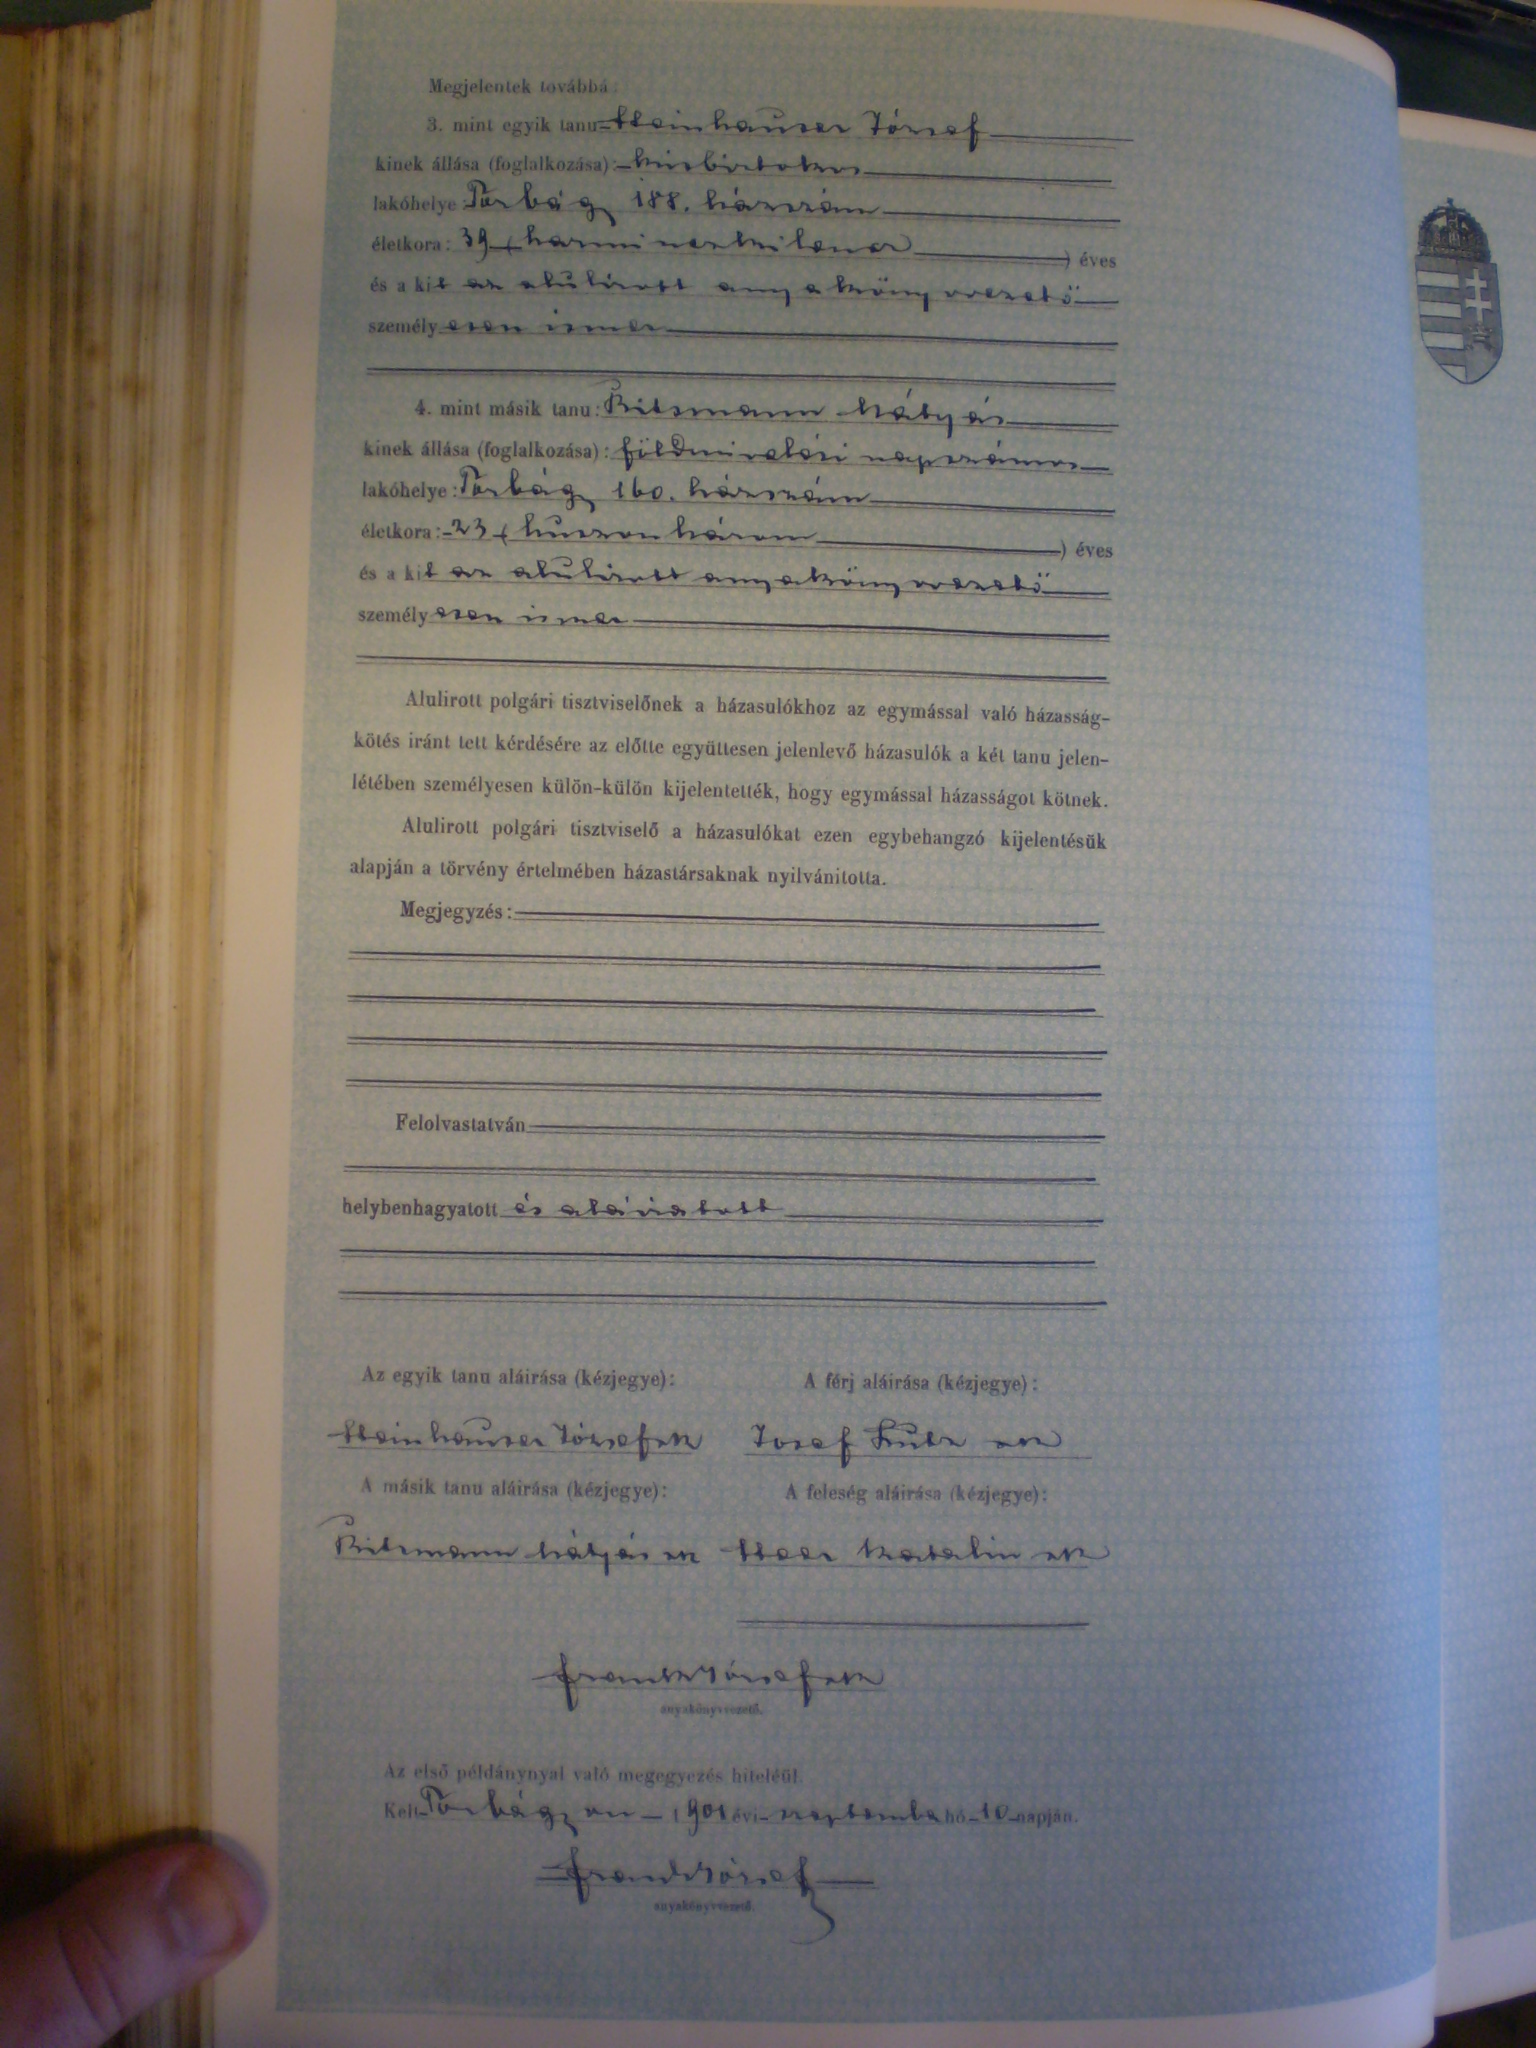 Megjelentek továbbá:
3. mint egyik tanu Steinhauser József
kinek állása (foglalkozása): kisbirtokos
lakóhelye: Torbágy 188. házszám
életkora: 39 (harminczkilencz) éves
és a kit az alulirott anyakönyvvezető
személyesen ismer
4. mint másik tanu: Ritzmann Mátyás
kinek állása (foglalkozása): földmivelési napszámos
lakóhelye: Torbágy 160. házszám
életkora: 23 (huszonhárom) éves
és a kit az alulirott anyakönyvvezető
személyesen ismer
Alulirott polgári tisztviselőnek a házasulókhoz az egymással való házasság-
kötés iránt tett kérdésére az előtte együttesen jelenlevő házasulók a két tanu jelen-
létében személyesen külön-külön kijelentették, hogy egymással házasságot kötnek.
Alulirott polgári tisztviselő a házasulókat ezen egybehangzó kijelentésük
alapján a törvény értelmében házastársaknak nyilvánitotta.
Megjegyzés:
Felolvastatván
helybenhagyatott és aláiratott
Az egyik tanu aláirása (kézjegye): A férj aláirása (kézjegye):
Steinhauser József sk Josef sk
A másik tanu aláirása (kézjegye): A feleség aláirása (kézjegye):
Ritzmann Mátyás sk Katalin sk
Frank József sk
anyakönyvvezető.
Az első példánynyal való megegyezés hiteléül.
Kelt Torbágyon 1901 évi szeptember hó 10 napján.
Frank József
anyakönyvvezető.